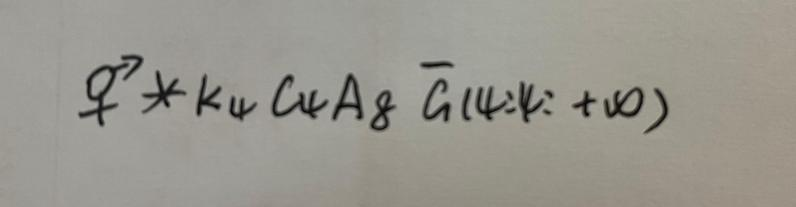 ⚥*K₄ C₄ A₈ G̅(4:4:+∞)